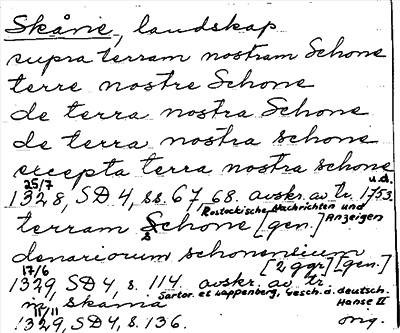 Skåne, landskap
supra terram nostram Schone
terre nostre Schone
de terra nostra Schone
de terra nostra schone
excepta terra nostra schone
25/7 u.å.
1328, SD 4, ss. 67 68. avskr. av tr. 1753.
Rostockische Nachrichten und
terram Schone [gen.] Anzeigen
s
denariorum schonensium
17/6 [2 ggr] [gen.]
1329, SD 4, s. 114. avskr. av tr.
Sartor. et Lappenberg, Gesch. d. deutsch.
in skania Hanse II
11/11
1329, SD 4, s. 136. orig.